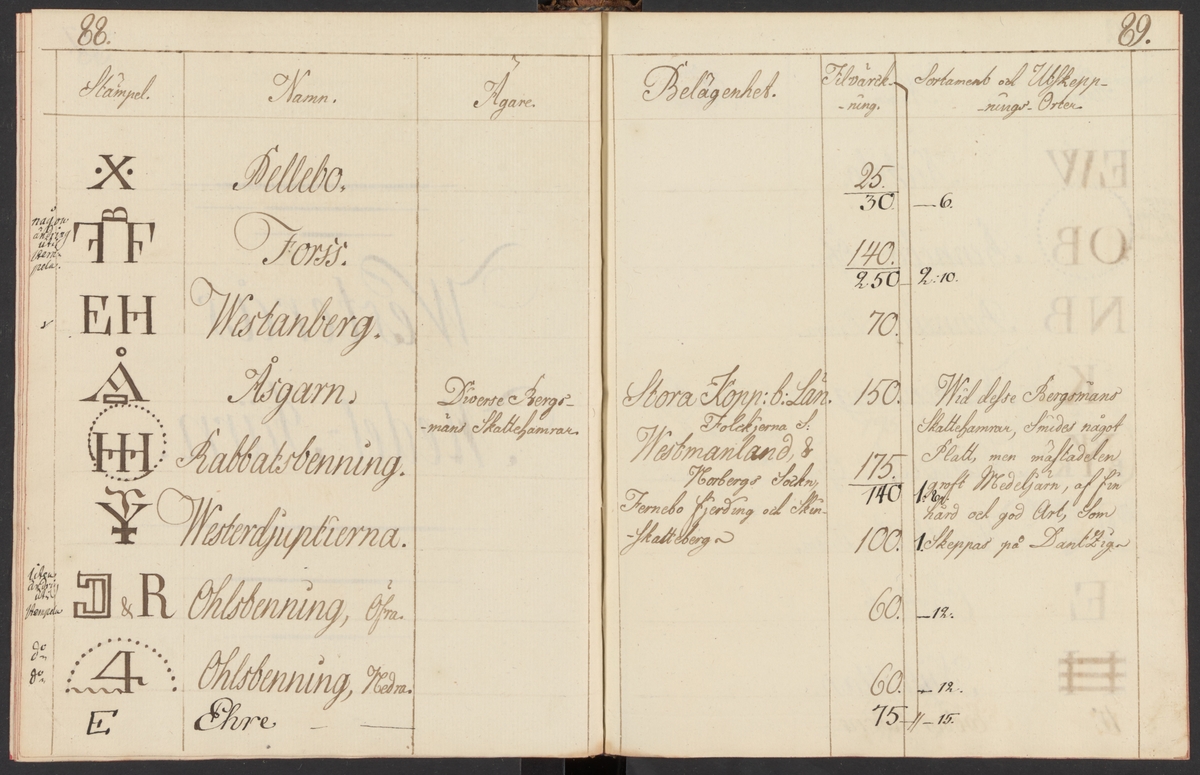 88.
89.
Stämpel.
Namn.
Ägare.
Belägenhet.
Tilvärck-
-ning.
Sortament och Utskepp-
-nings-Orter.
X
Pellebo.
25.
30.
— 6.
någon
ändring
uti
Stem-
pela.
Forss.
140.
250
2.10.
EH
Westanberg.
70.
Åsgarn.
Diverse Bergs-
-mäns Skattehamrar
Stora Kopp: b: Län.
Folckjerna S:
150.
Wid desse Bergsmans
Skattehamrar, Smides något
HH
Rabbatsbenning.
Westmanland, &
Norbergs Sockn,
175.
140
Platt, men mästadelen
groft Medeljärn, af fin
Westerdjuptierna.
Fernebo fjerding och Skin-
-skatteberg
100.
hård och god Art, som
1.
Skeppas på Dantzig
liten
ändring
uti
Stempeln
J & R
Ohlsbenning, Öfra.
60.
— 12.
do
do
4
Ohlsbenning, Nedra.
60.
— 12.
E
Ehre
75
// — 15.